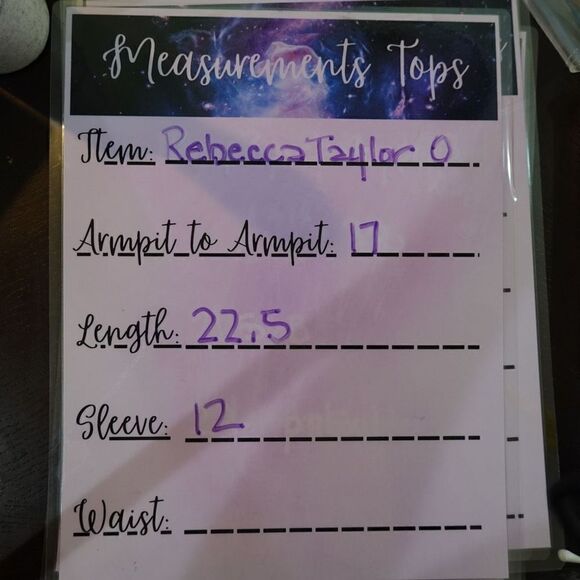 Measurements Tops
Item: Rebecca Taylor 0
Armpit to Armpit: 17
Length: 22.5
Sleeve: 12
Waist: